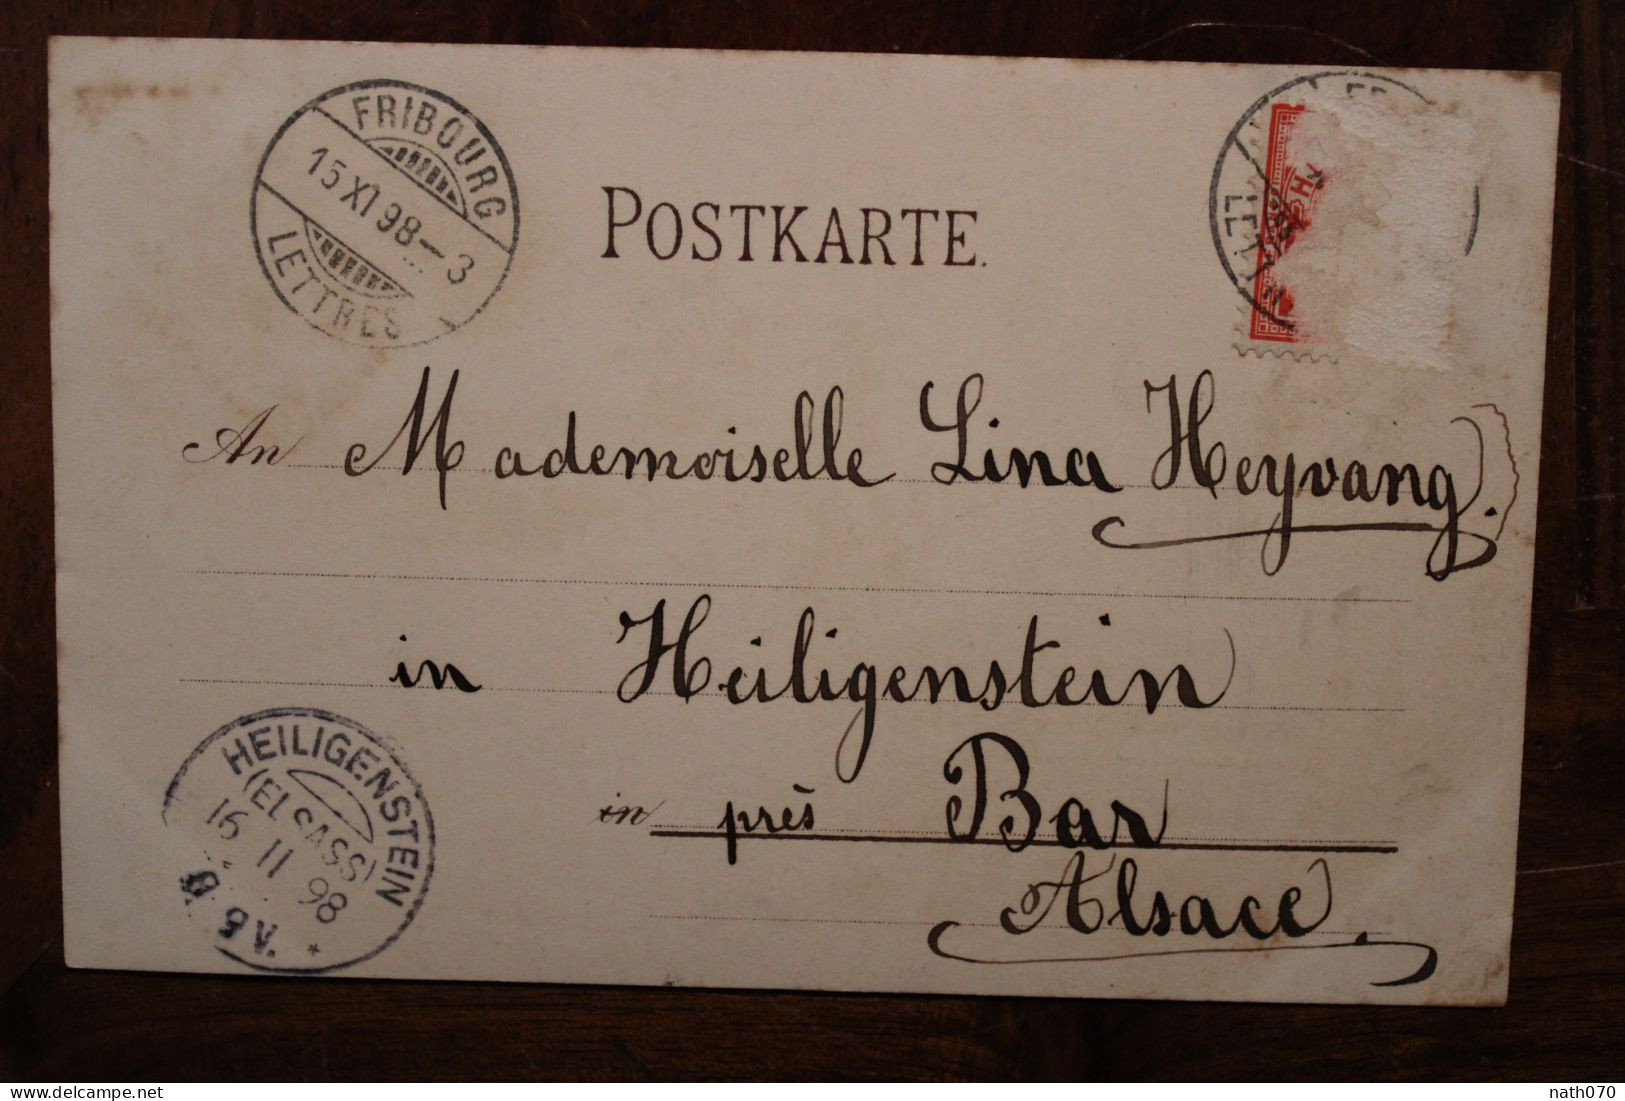 FRIBOURG
15 XI 98-3
LETTRES
POSTKARTE.
An Mademoiselle Lina Heyvang.
in Heiligenstein
in près Bar
Alsace.
HEILIGENSTEIN
(ELSASS)
16 11 98
delcampe.net
nath070